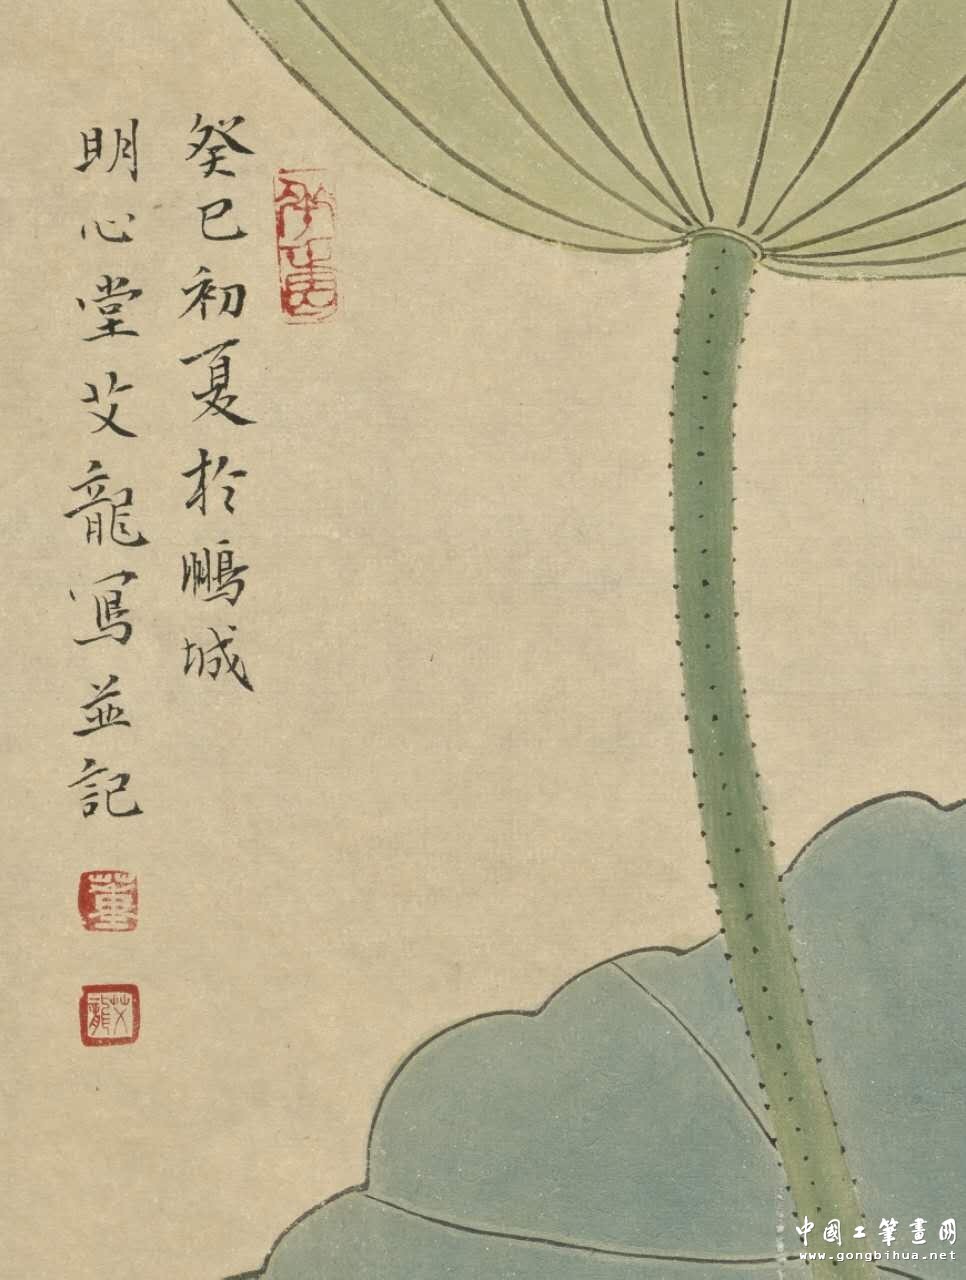 癸巳初夏於鵬城
明心堂艾龍寫並記
董
艾龍
中國工筆畫网
www.gongbihua.net